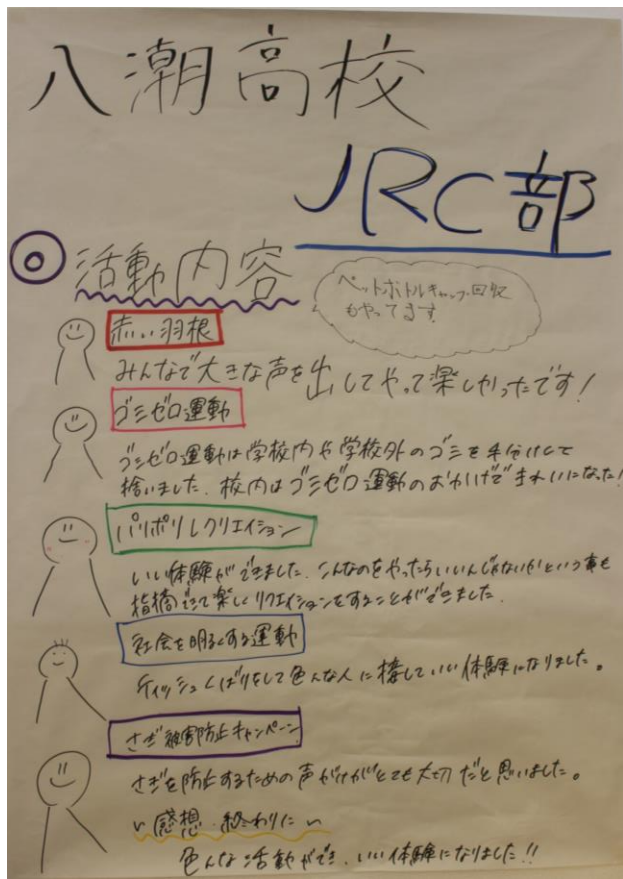 八潮高校
JRC部
◎活動内容
ペットボトルキャップ回収
もやってます
赤い羽根
みんなで大きな声を出してやって楽しかったです！
ゴミゼロ運動
ゴミゼロ運動は学校内や学校外のゴミを手分けして
拾いました．校内はゴミゼロ運動のおかげできれいになった！
パリポリレクリエイション
いい体験ができました．こんなのをやったらいいんじゃないかという事も
指摘できて楽しくリクエイションをすることができました．
社会を明るくする運動
ティッシュくばりをして色んな人に接していい体験になりました。
さぎ被害防止キャンペーン
さぎを防止するための声がけがとても大切だと思いました。
〜感想．終わりに〜
色んな活動ができ．いい体験になりました!!